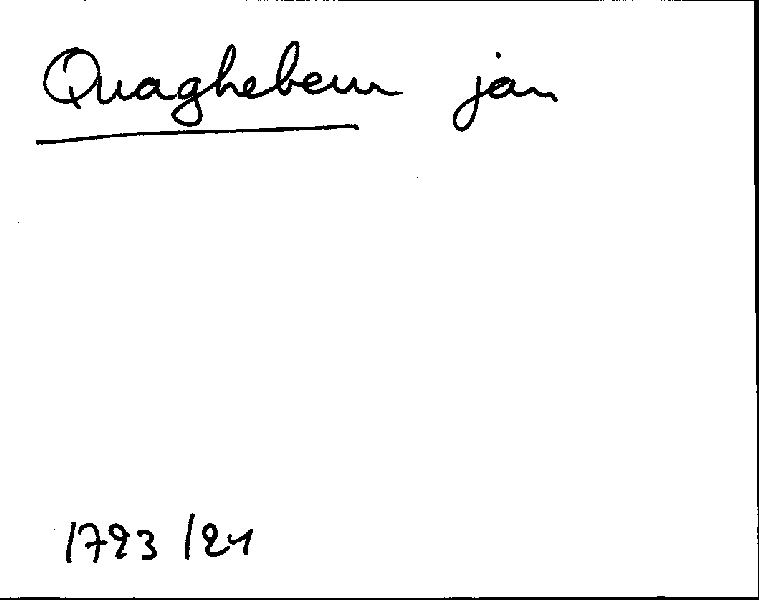 Quaghebeur jan
1723 /21